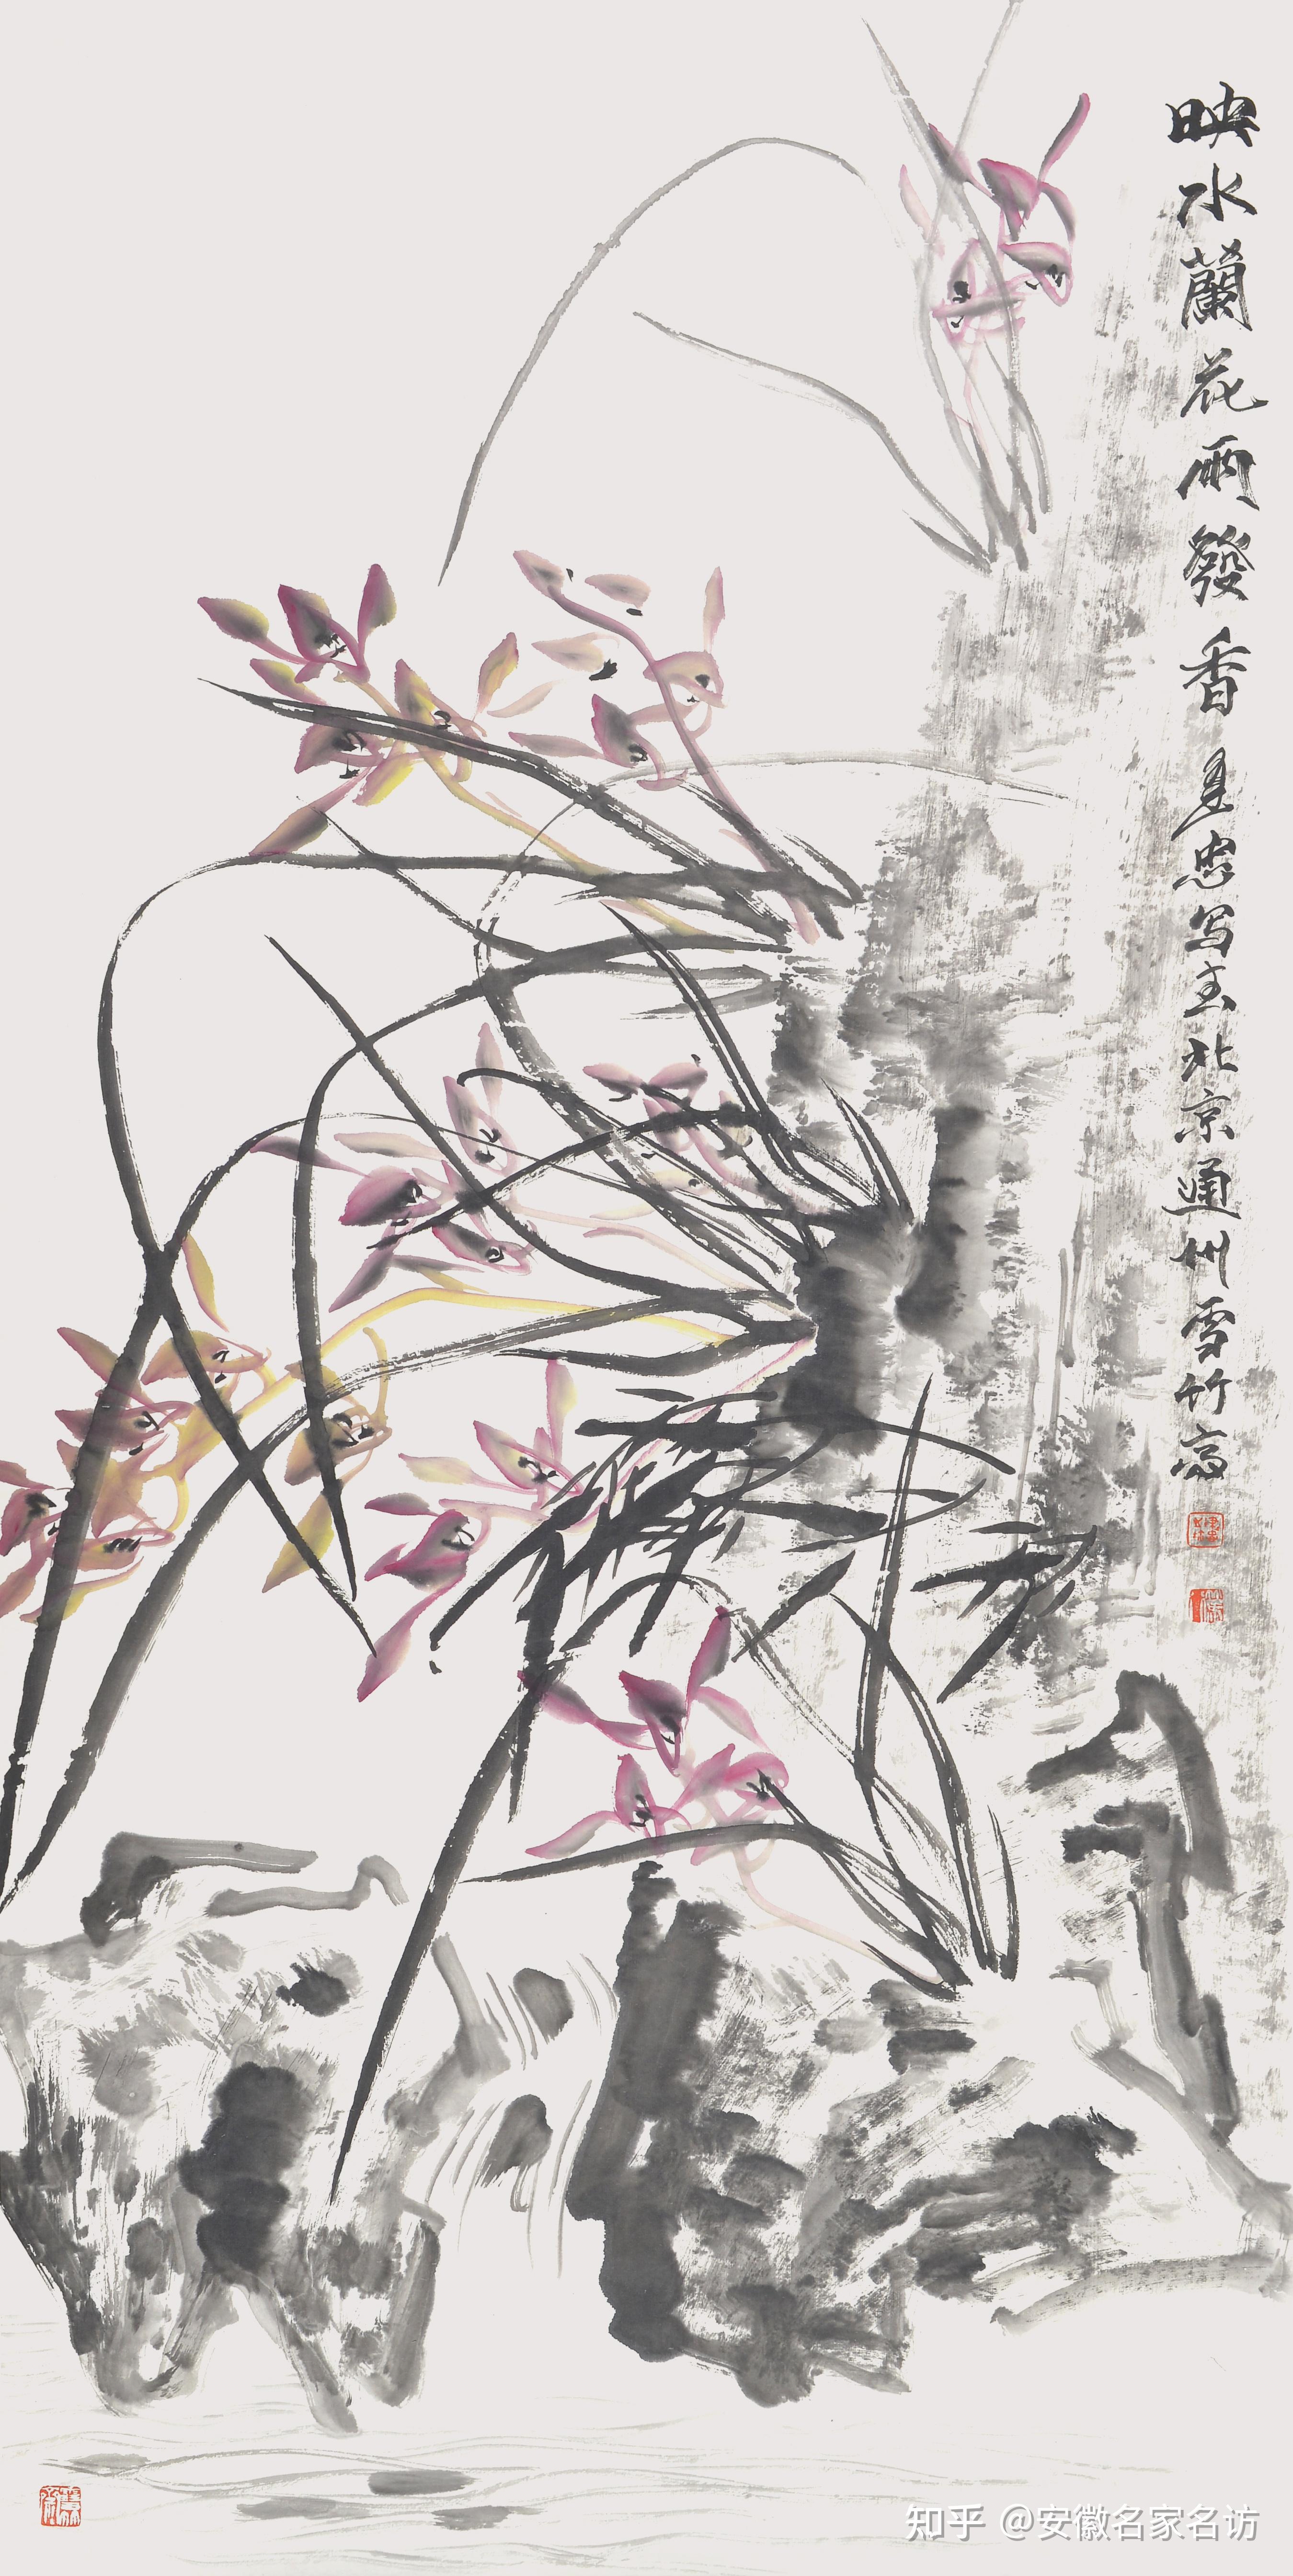 映水蘭花雨發香 建忠写于北京通州雪竹斋
知乎 @安徽名家名访